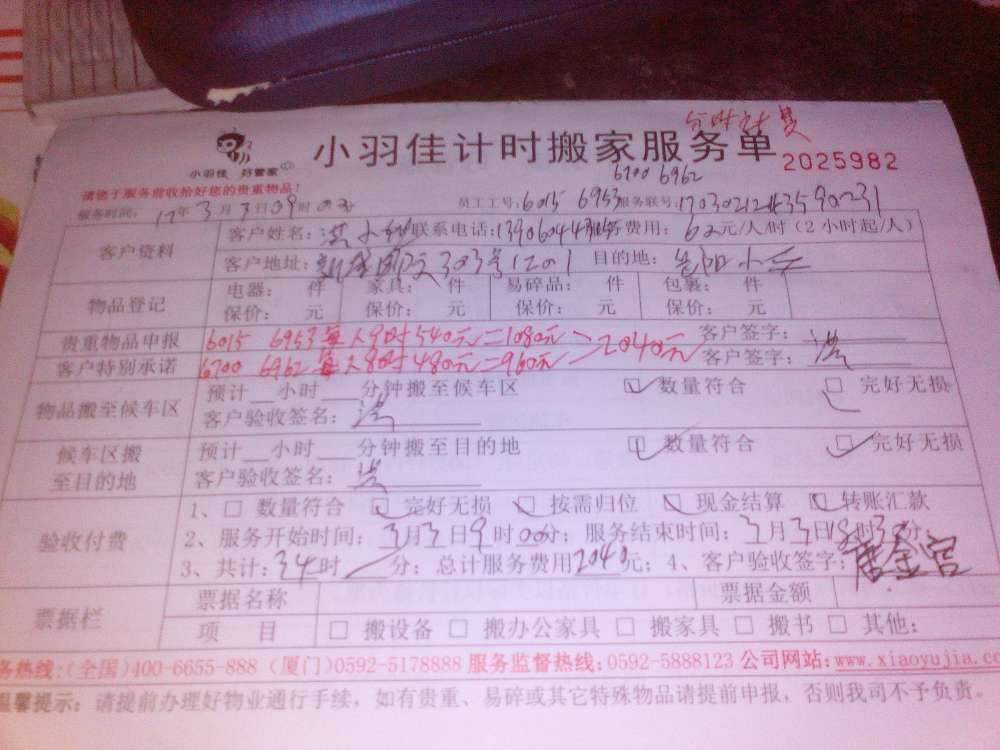 分时计费
小羽佳 好管家
小羽佳计时搬家服务单
2025982
请您于服务前收拾好您的贵重物品!
6700 6962
服务时间: 17年3月3日09时00分 员工工号: 6015 6953 服务联号:
客户资料 客户姓名: 洪 联系电话: 费用: 60元/人/时 (2小时起/人)
客户地址: 303号1201 目的地: 小区
物品登记 电器: 件 家具: 件 易碎品: 件 包裹: 件
保价: 元 保价: 元 保价: 元 保价: 元
贵重物品申报 6015 6953 每人9时540元=1080元 2040元 客户签字:
客户特别承诺 6700 6962 每人8时480元=960元 客户签字: 洪
物品搬至候车区 预计__小时___分钟搬至候车区 数量符合 完好无损
客户验收签名: 洪
候车区搬至目的地 预计__小时___分钟搬至目的地 数量符合 完好无损
客户验收签名: 洪
验收付费 1、 数量符合 完好无损 按需归位 现金结算 转账汇款
2、服务开始时间: 3月3日9时00分; 服务结束时间: 3月3日18时30分;
3、共计: 34时 分; 总计服务费用2040元; 4、客户验收签字:
票据栏 票据名称 票据金额
项 目 搬设备 搬办公家具 搬家具 搬书 其他:
务热线:(全国)400-6655-888 (厦门)0592-5178888 服务监督热线:0592-5888123 公司网站:www.xiaoyujia.co
温馨提示: 请提前办理好物业通行手续, 如有贵重、易碎或其它特殊物品请提前申报, 否则我司不予负责。